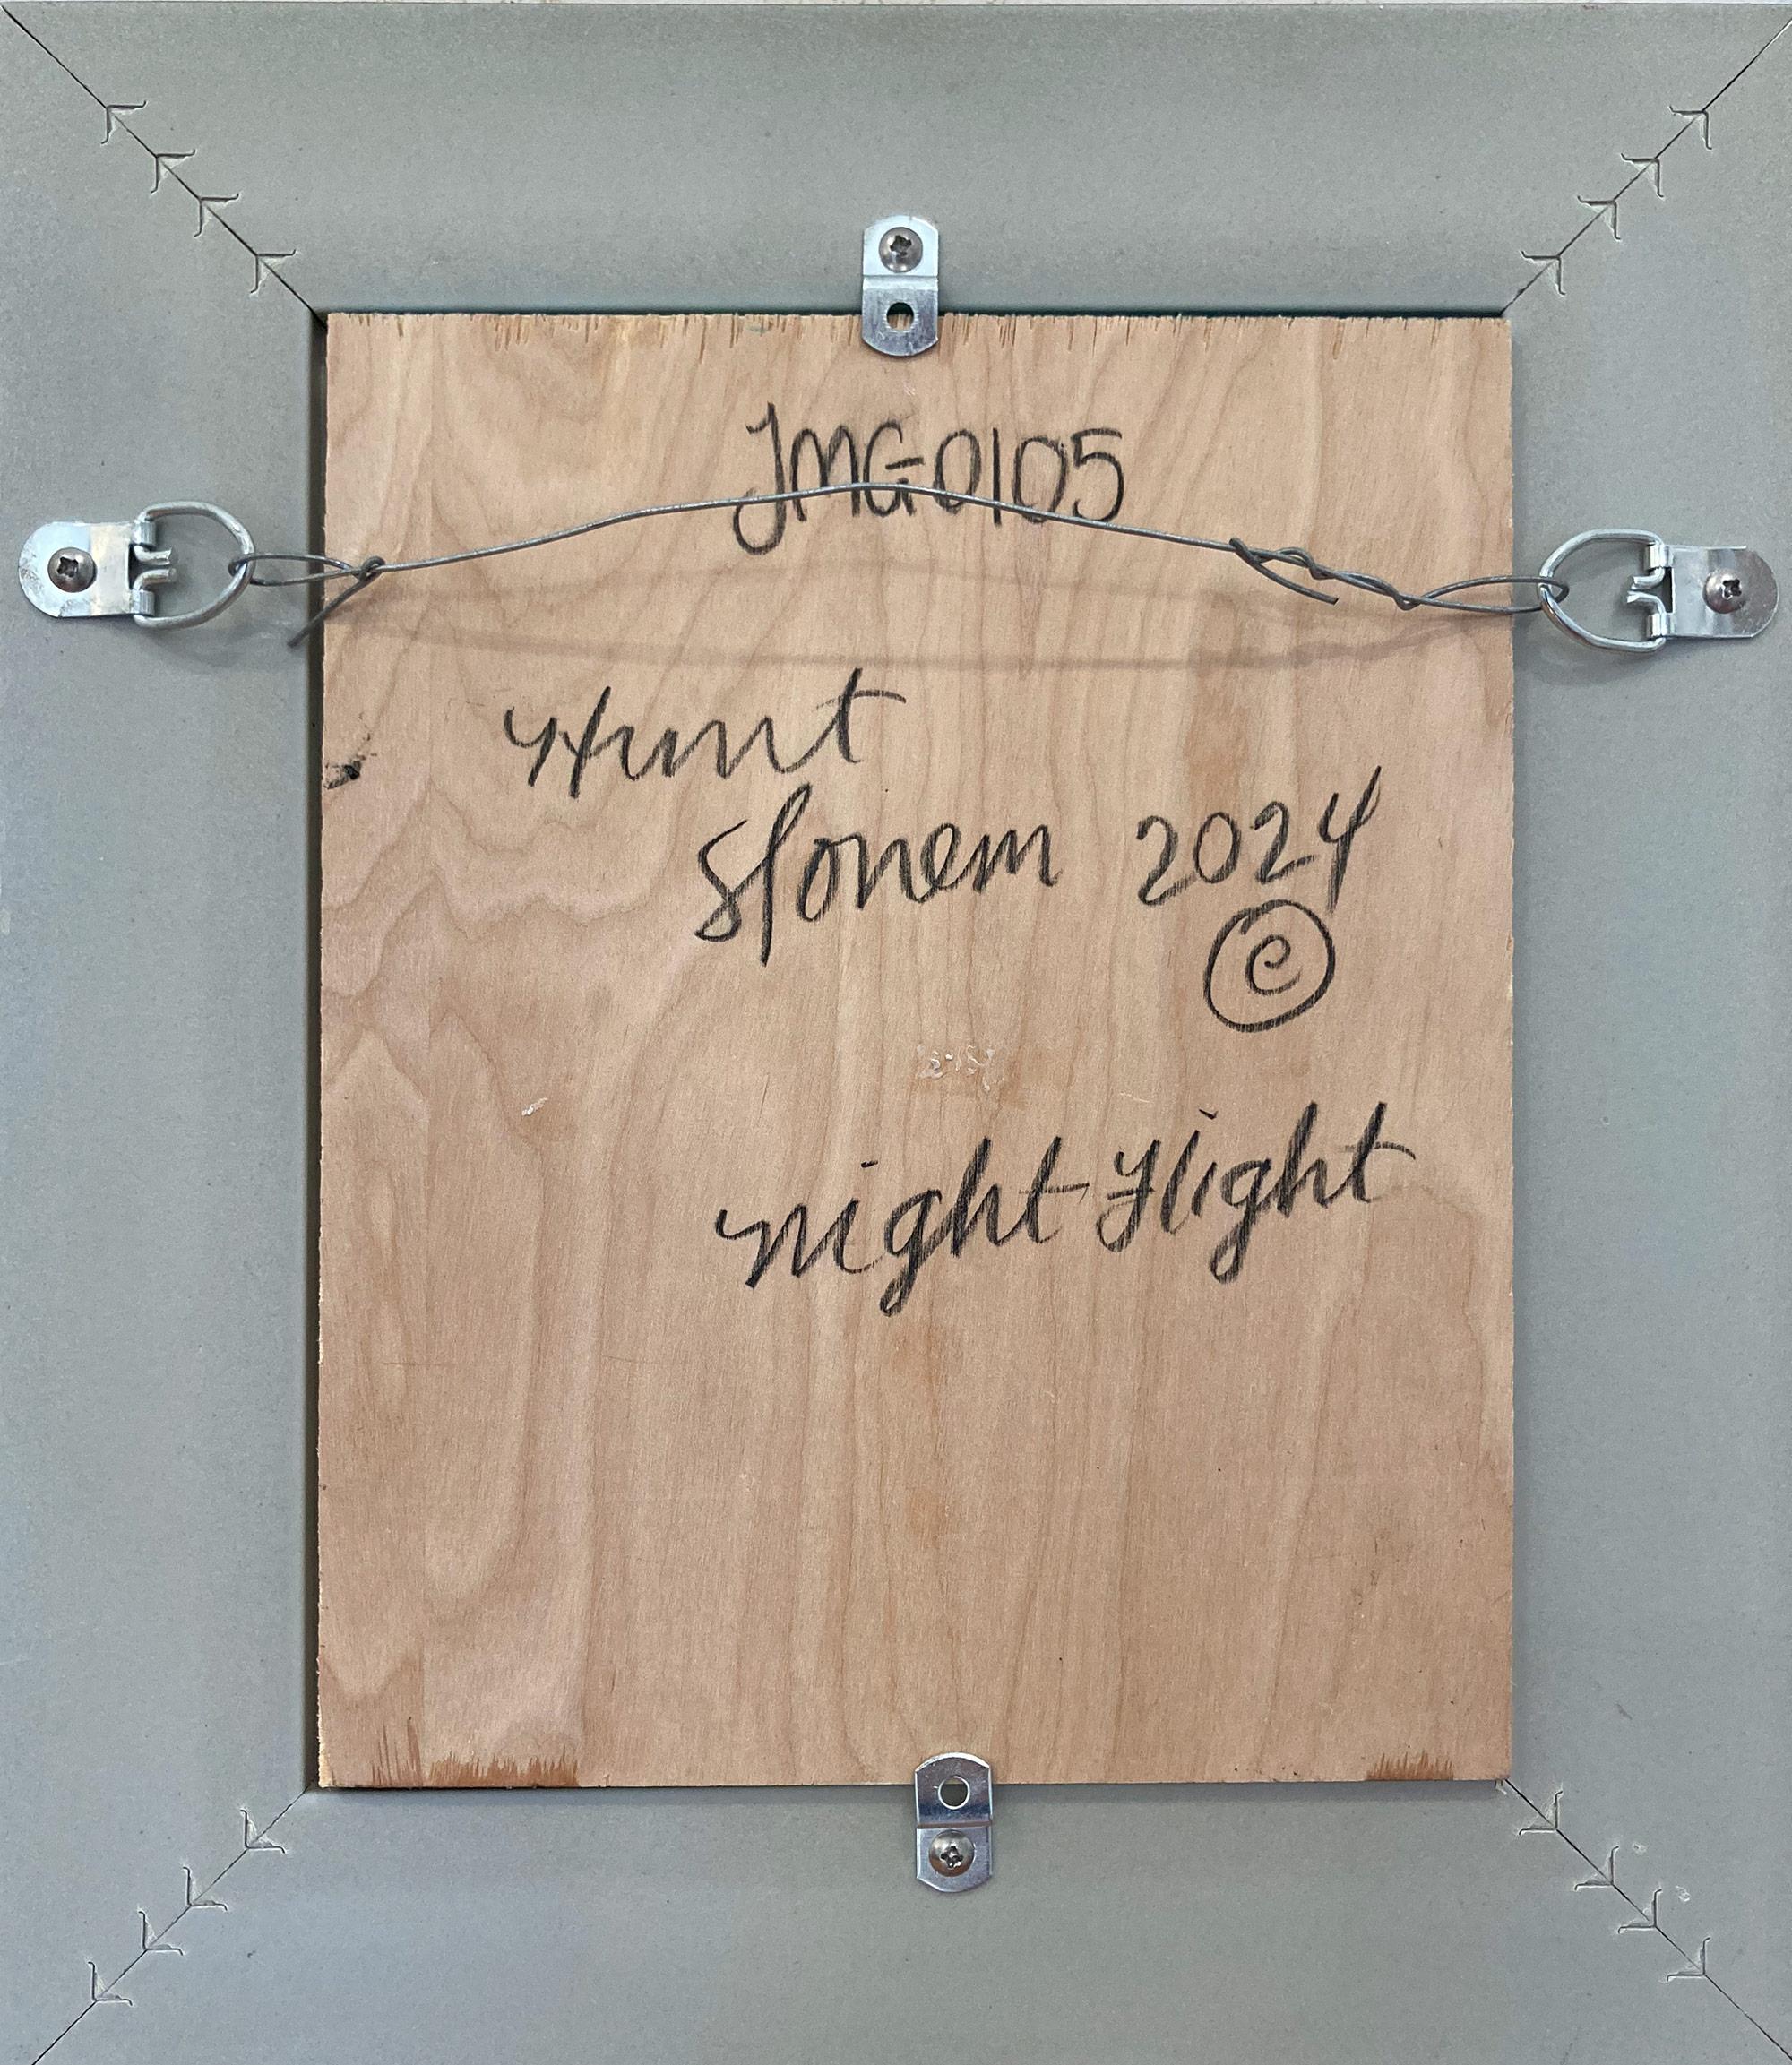 JMG0105
Hunt
Slonem 2024
©
night Flight